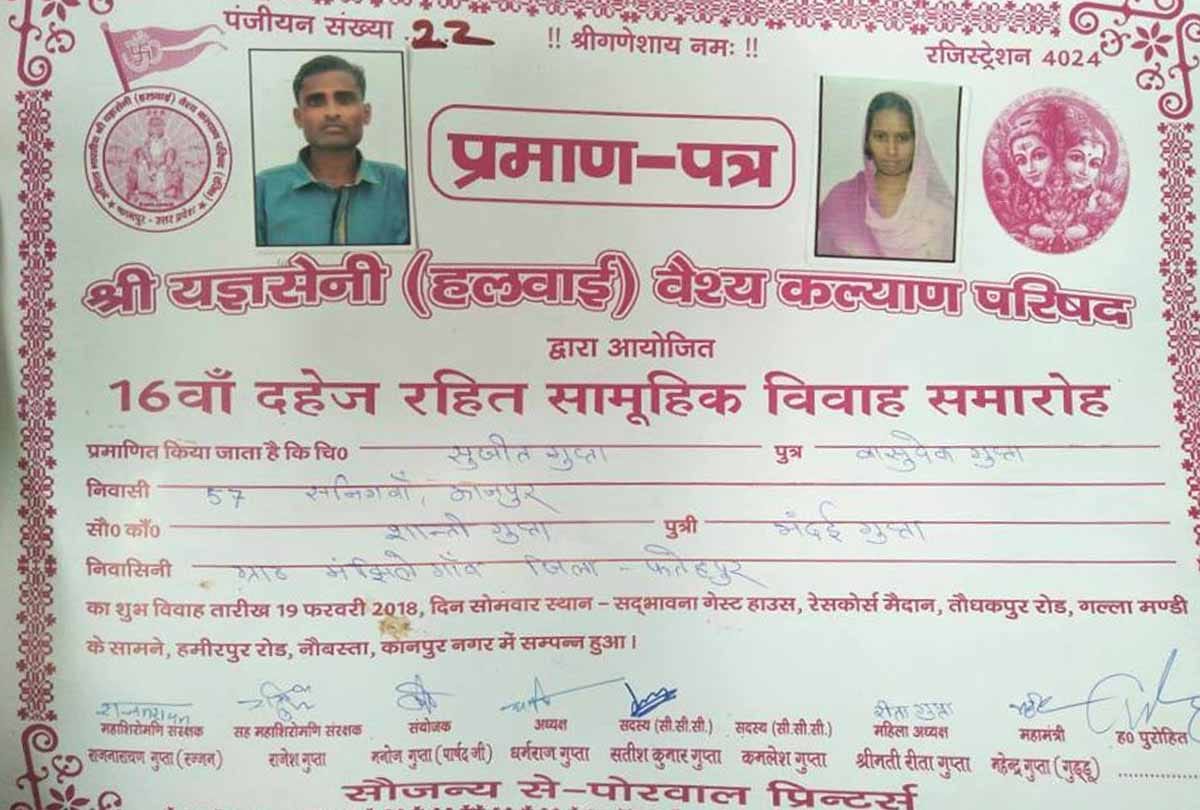 पंजीयन संख्या 22
!! श्रीगणेशाय नमः !!
रजिस्ट्रेशन 4024
प्रमाण-पत्र
श्री यज्ञसेनी (हलवाई) वैश्य कल्याण परिषद
द्वारा आयोजित
16वाँ दहेज रहित सामूहिक विवाह समारोह
प्रमाणित किया जाता है कि चि0 सुजीत गुप्ता पुत्र वासुदेव गुप्ता
निवासी 57 सनिगवाँ, कानपुर
सौ0 काँ0 शान्ती गुप्ता पुत्री मंदई गुप्ता
निवासिनी ग्राम गाँव जिला - फतेहपुर
का शुभ विवाह तारीख 19 फरवरी 2018, दिन सोमवार स्थान – सद्भावना गेस्ट हाउस, रेसकोर्स मैदान, तौधकपुर रोड, गल्ला मण्डी
के सामने, हमीरपुर रोड, नौबस्ता, कानपुर नगर में सम्पन्न हुआ।
राजनारायण रीता गुप्ता
महाशिरोमणि संरक्षक सह महाशिरोमणि संरक्षक संयोजक अध्यक्ष सदस्य (सी.सी.सी.) सदस्य (सी.सी.सी.) महिला अध्यक्ष महामंत्री ह0 पुरोहित
राजनारायण गुप्ता (रज्जन) राजेश गुप्ता मनोज गुप्ता (पार्षद जी) धर्मराज गुप्ता सतीश कुमार गुप्ता कमलेश गुप्ता श्रीमती रीता गुप्ता महेन्द्र गुप्ता (गुड्डू)
सौजन्य से-पोरवाल प्रिन्टर्स